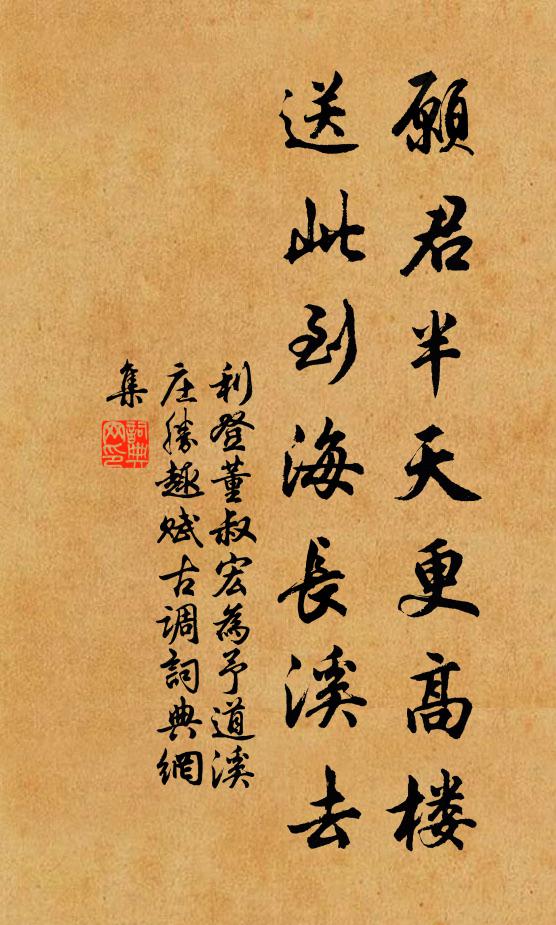 願君半天更高楼
送此到海長溪去
利登董叔宏為予道溪
庄勝趣賦古调詞典網
集
詞典
网印